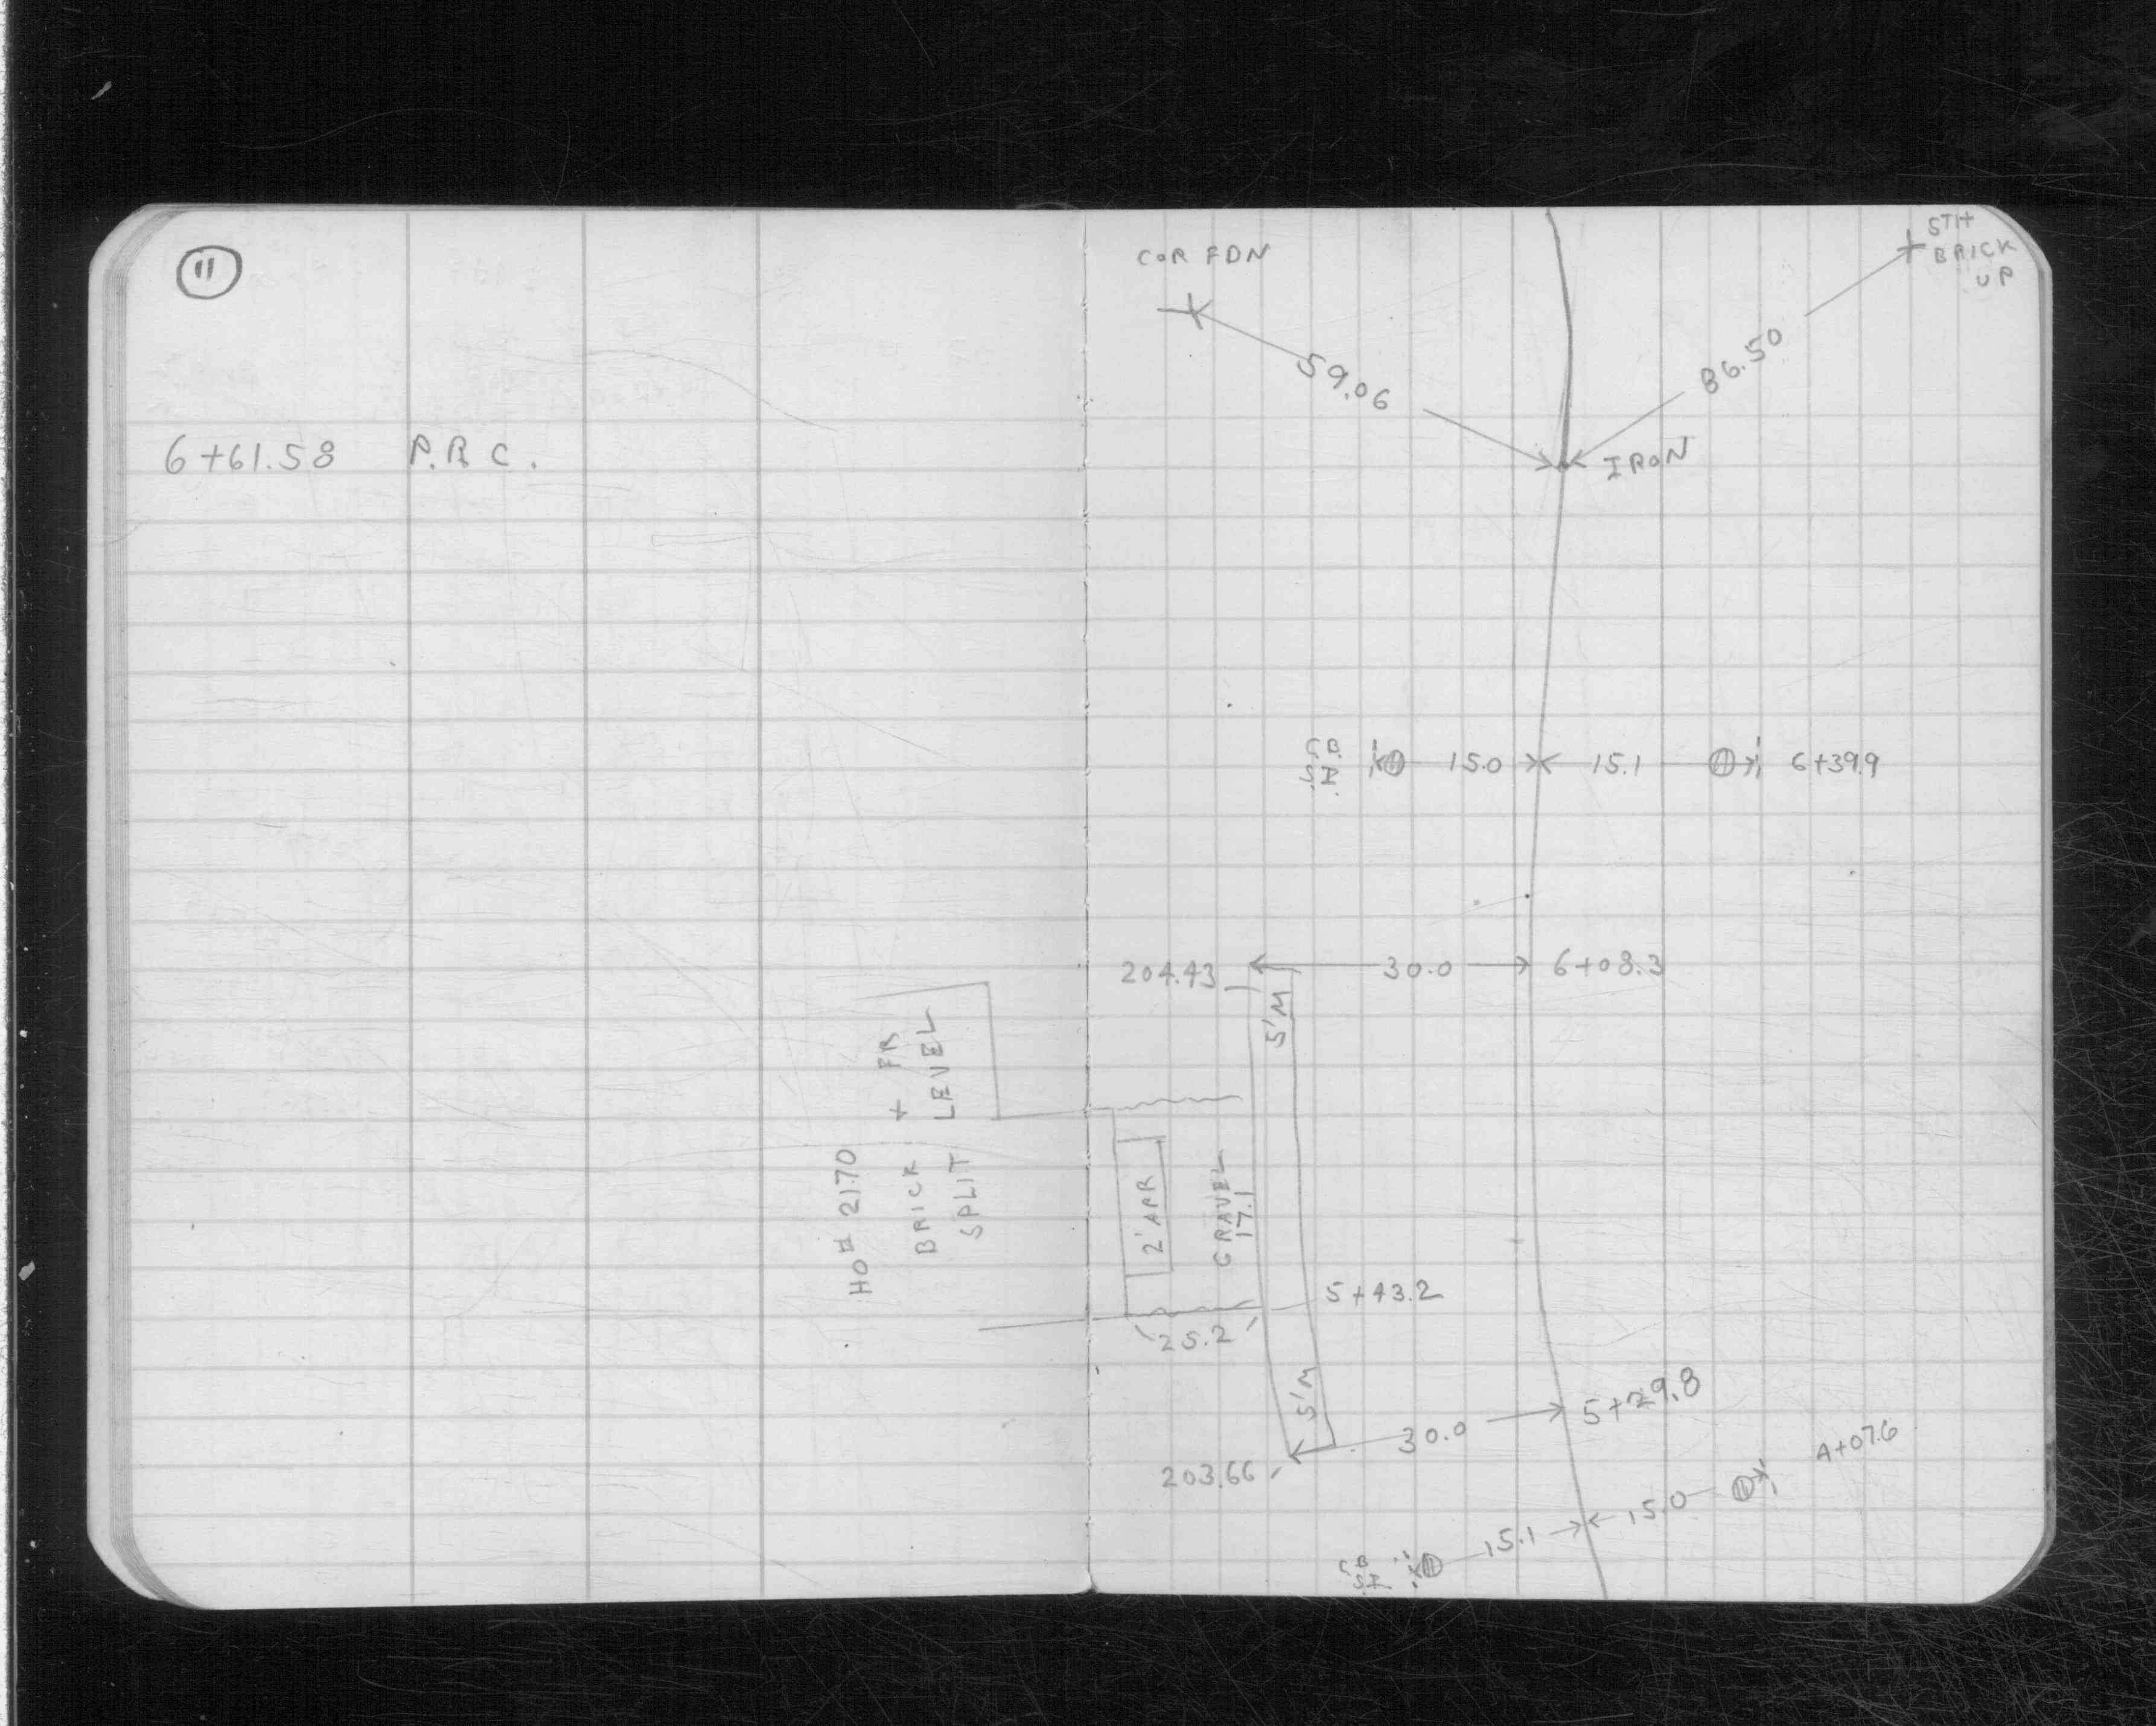 11
6+61.58 P.R.C.
HO # 2170
BRICK + FR
SPLIT LEVEL
COR FDN
5TH
BRICK
UP
59.06
86.50
IRON
CB
SI
15.0
15.1
6+39.9
204.43
30.0
6+08.3
5'M
2' APR
GRAVEL
17.1
5+43.2
25.2
5'M
30.0
5+29.8
203.66
A+07.6
15.0
15.1
CB
SI